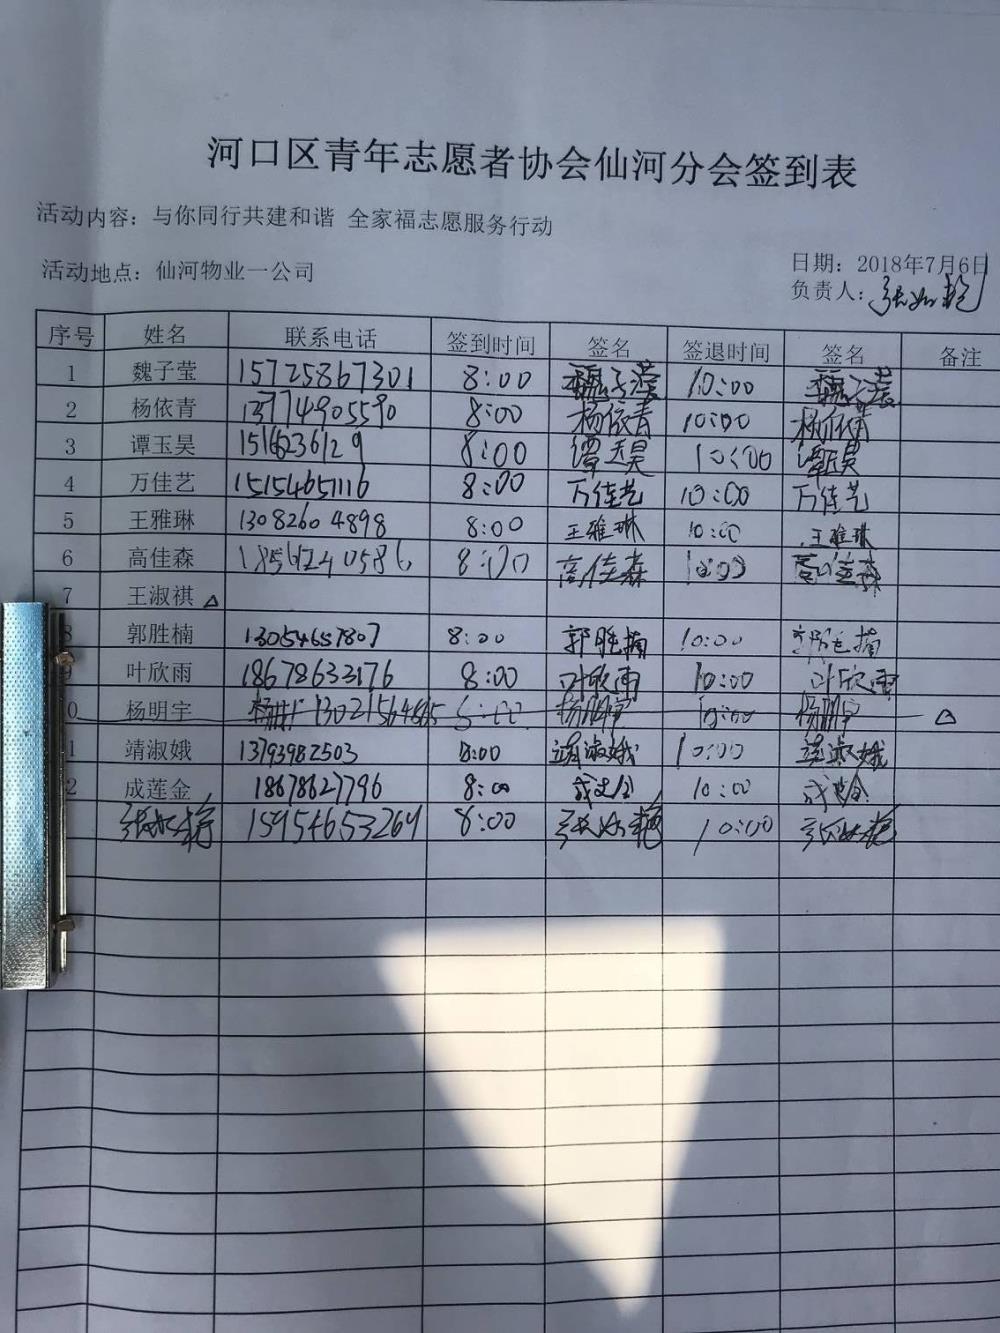 河口区青年志愿者协会仙河分会签到表
活动内容：与你同行共建和谐 全家福志愿服务行动
活动地点：仙河物业一公司
日期：2018年7月6日
负责人：
序号 姓名 联系电话 签到时间 签名 签退时间 签名 备注
1 魏子莹 15725867301 8:00 魏子莹 10:00 魏子莹
2 杨依青 13774905590 8:00 杨依青 10:00 杨依青
3 谭玉昊 8:00 谭玉昊 10:00 谭玉昊
4 万佳艺 15154651116 8:00 万佳艺 10:00 万佳艺
5 王雅琳 13082604898 8:00 王雅琳 10:00 王雅琳
6 高佳森 18561240586 8:00 高佳森 10:00 高佳森
7 王淑祺 △
8 郭胜楠 13054657807 8:00 郭胜楠 10:00
9 叶欣雨 18678633176 8:00 叶欣雨 10:00 叶欣雨
0 杨明宇 8:00 杨明宇 10:00 杨明宇 △
1 靖淑娥 13793982503 8:00 靖淑娥 10:00 靖淑娥
2 成莲金 18678627796 8:00 10:00
15954653269 8:00 10:00